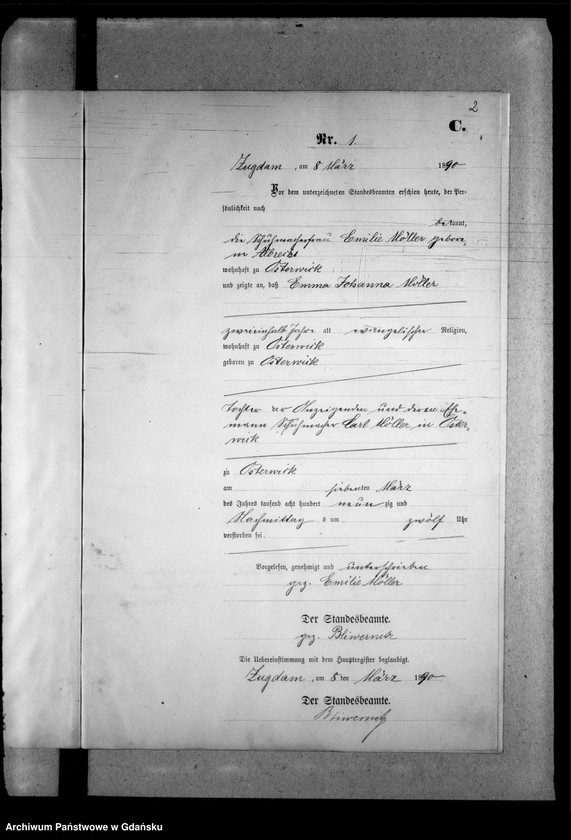 2
C.
Nr. 1.
Zugdam, am 8 März 1890
Vor dem unterzeichneten Standesbeamten erschien heute, der Per-
sönlichkeit nach
bekannt,
die Schuhmacherfrau Emilie Möller gebore-
ne Albrecht
wohnhaft zu Osterwick
und zeigte an, daß Emma Johanna Möller
zweieinhalb Jahre alt evangelischer Religion,
wohnhaft zu Osterwick
geboren zu Osterwick
Tochter der Anzeigenden und deren Ehe-
mann Schuhmacher Carl Möller in Oster-
wick
zu Osterwick
am siebenten März
des Jahres tausend acht hundert neun zig und
Nachmittag s um zwölf Uhr
verstorben sei.
Vorgelesen, genehmigt und unterschrieben
gez. Emilie Möller
Der Standesbeamte.
gez. Bliwernitz
Die Uebereinstimmung mit dem Hauptregister beglaubigt.
Zugdam, am 8 ten März 1890
Der Standesbeamte.
Bliwernitz
Archiwum Państwowe w Gdańsku